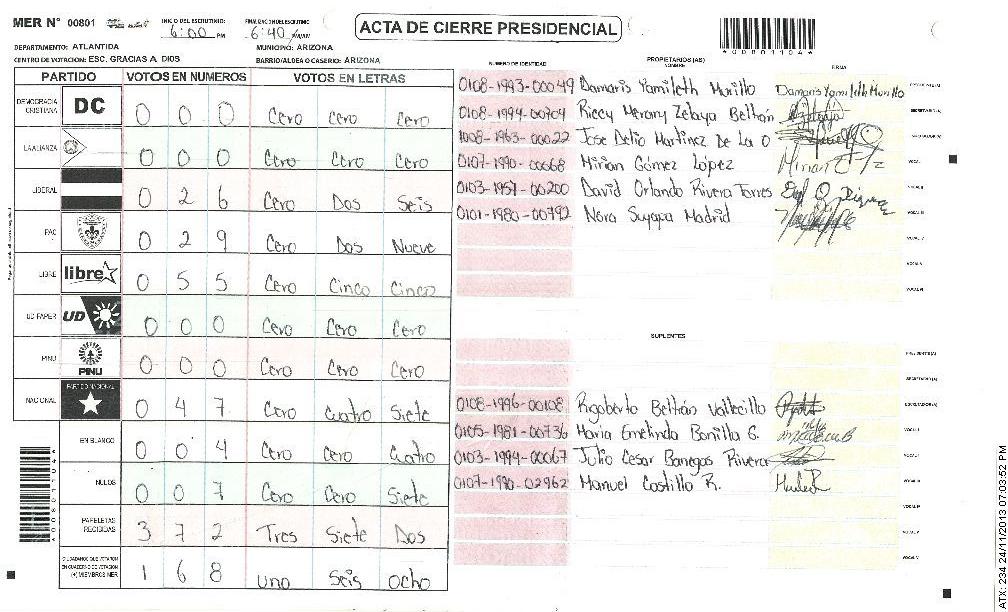 MER N° 00801
INICIO DEL ESCRUTINIO: 6:00 PM
FINALIZACION DEL ESCRUTINIO 6:40
ACTA DE CIERRE PRESIDENCIAL
*00801104*
DEPARTAMENTO: ATLANTIDA
MUNICIPIO: ARIZONA
CENTRO DE VOTACION: ESC. GRACIAS A DIOS
BARRIO/ALDEA O CASERIO: ARIZONA
PARTIDO VOTOS EN NUMEROS VOTOS EN LETRAS
DEMOCRACIA CRISTIANA DC 0 0 0 Cero Cero Cero
LA ALIANZA 0 0 0 Cero Cero Cero
LIBERAL 0 2 6 Cero Dos Seis
PAC 0 2 9 Cero Dos Nueve
LIBRE libre 0 5 5 Cero Cinco Cinco
UD FAPER UD 0 0 0 Cero Cero Cero
PINU PINU 0 0 0 Cero Cero Cero
NACIONAL PARTIDO NACIONAL 0 4 7 Cero Cuatro Siete
EN BLANCO 0 0 4 Cero Cero Cuatro
NULOS 0 0 7 Cero Cero Siete
PAPELETAS RECIBIDAS 3 7 2 Tres Siete Dos
CIUDADANOS QUE VOTARON EN CUADERNO DE VOTACION (+) MIEMBROS MER 1 6 8 Uno Seis Ocho
NUMERO DE IDENTIDAD
PROPIETARIOS (AS)
NOMBRE
FIRMA
0108-1993-00049 Damaris Yamileth Murillo Damaris Yamileth Murillo PRESIDENTE(A)
0108-1994-00704 Riccy Merany Zelaya Beltrán SECRETARIO(A)
1008-1963-00022 Jose Delio Martinez De La O ESCRUTADOR(A)
0107-1990-00068 Mirian Gómez López VOCAL I
0103-1957-00200 David Orlando Rivera Torres VOCAL II
0101-1980-00792 Nora Suyapa Madrid VOCAL III
VOCAL IV
VOCAL V
VOCAL VI
SUPLENTES
PRESIDENTE(A)
SECRETARIO(A)
0108-1996-00108 Rigoberto Beltrán Vallecillo ESCRUTADOR(A)
0105-1981-00736 Maria Emelinda Bonilla G. VOCAL I
0103-1994-00067 Julio Cesar Banegas Rivera VOCAL II
0107-1990-02962 Manuel Castillo R. VOCAL III
VOCAL IV
VOCAL V
VOCAL VI
*00801104*
ATX: 234 24/11/2013 07:03:52 PM